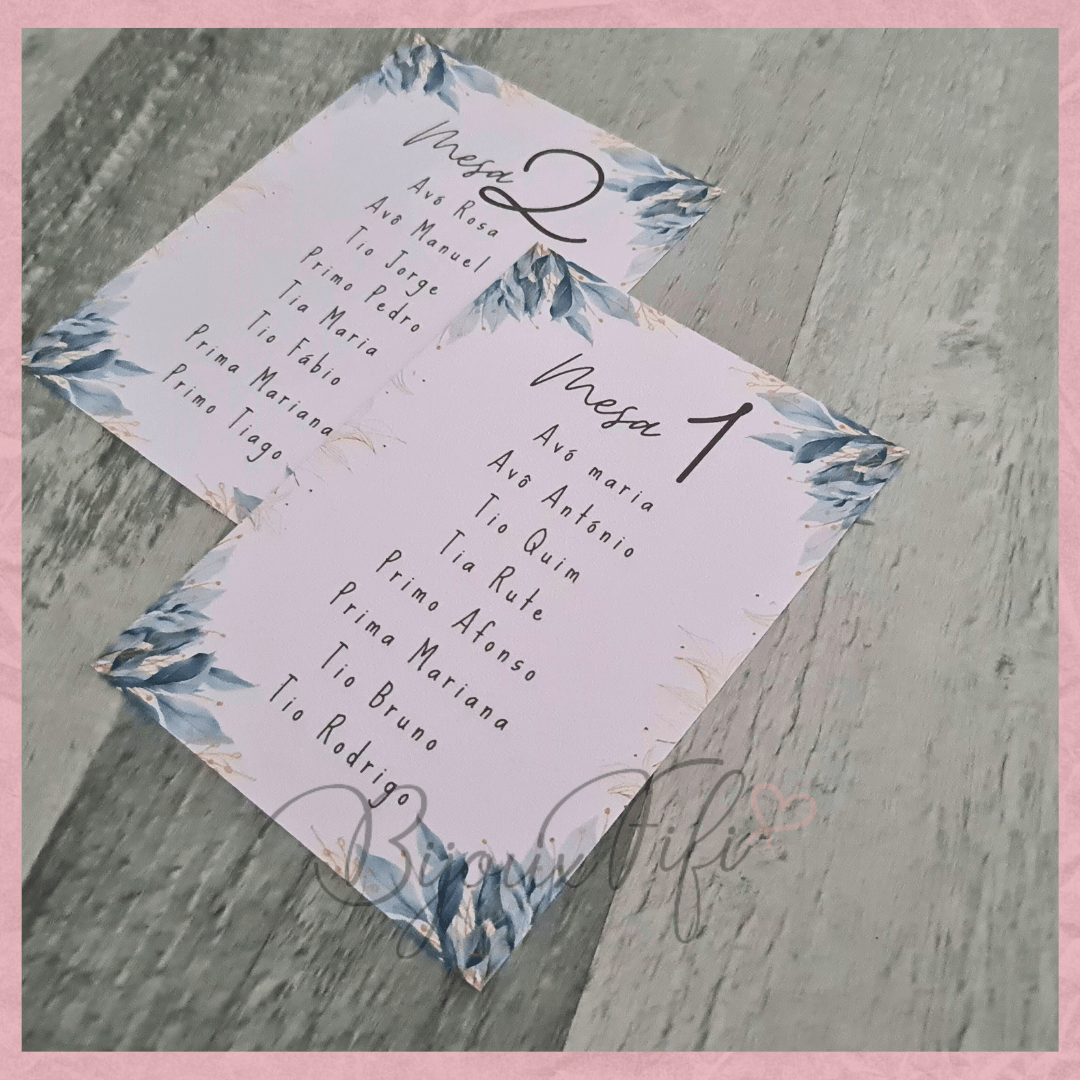 Mesa 2
Avó Rosa
Avô Manuel
Tio Jorge
Primo Pedro
Tia Maria
Tio Fábio
Prima Mariana
Primo Tiago
Mesa 1
Avó maria
Avô António
Tio Quim
Tia Rute
Primo Afonso
Prima Mariana
Tio Bruno
Tio Rodrigo
BijouxFifi